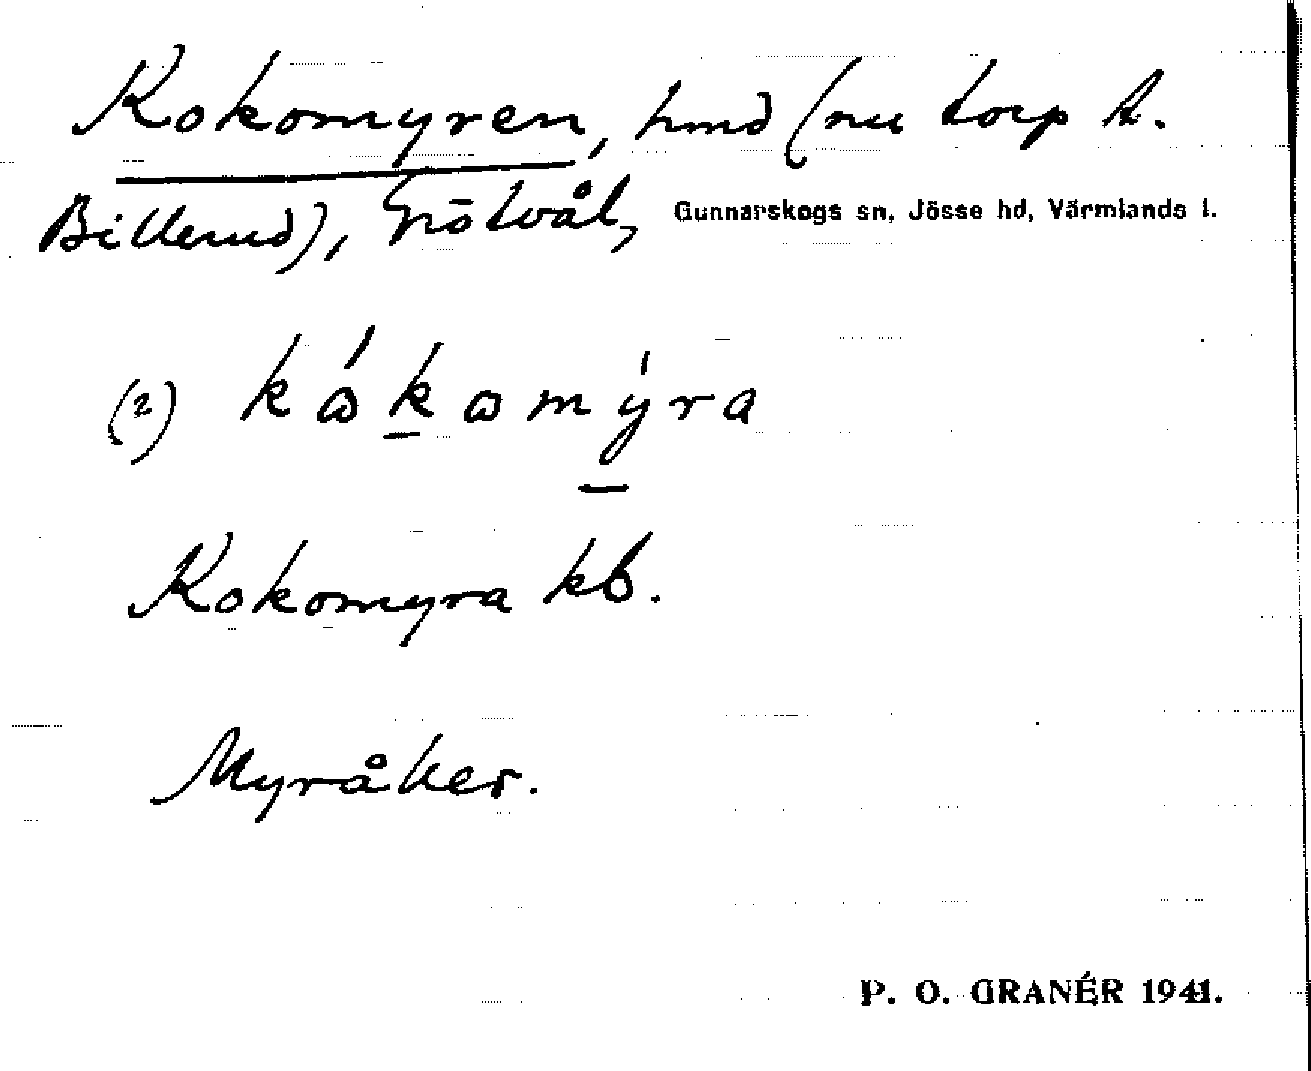 Kokomyren, hmd (nu torp t.
Billerud), Grötvål, Gunnarskogs sn, Jösse hd, Värmlands l.
(2) kókomýra
Kokomyra kb.
Myråker.
P. O. GRANÉR 1941.